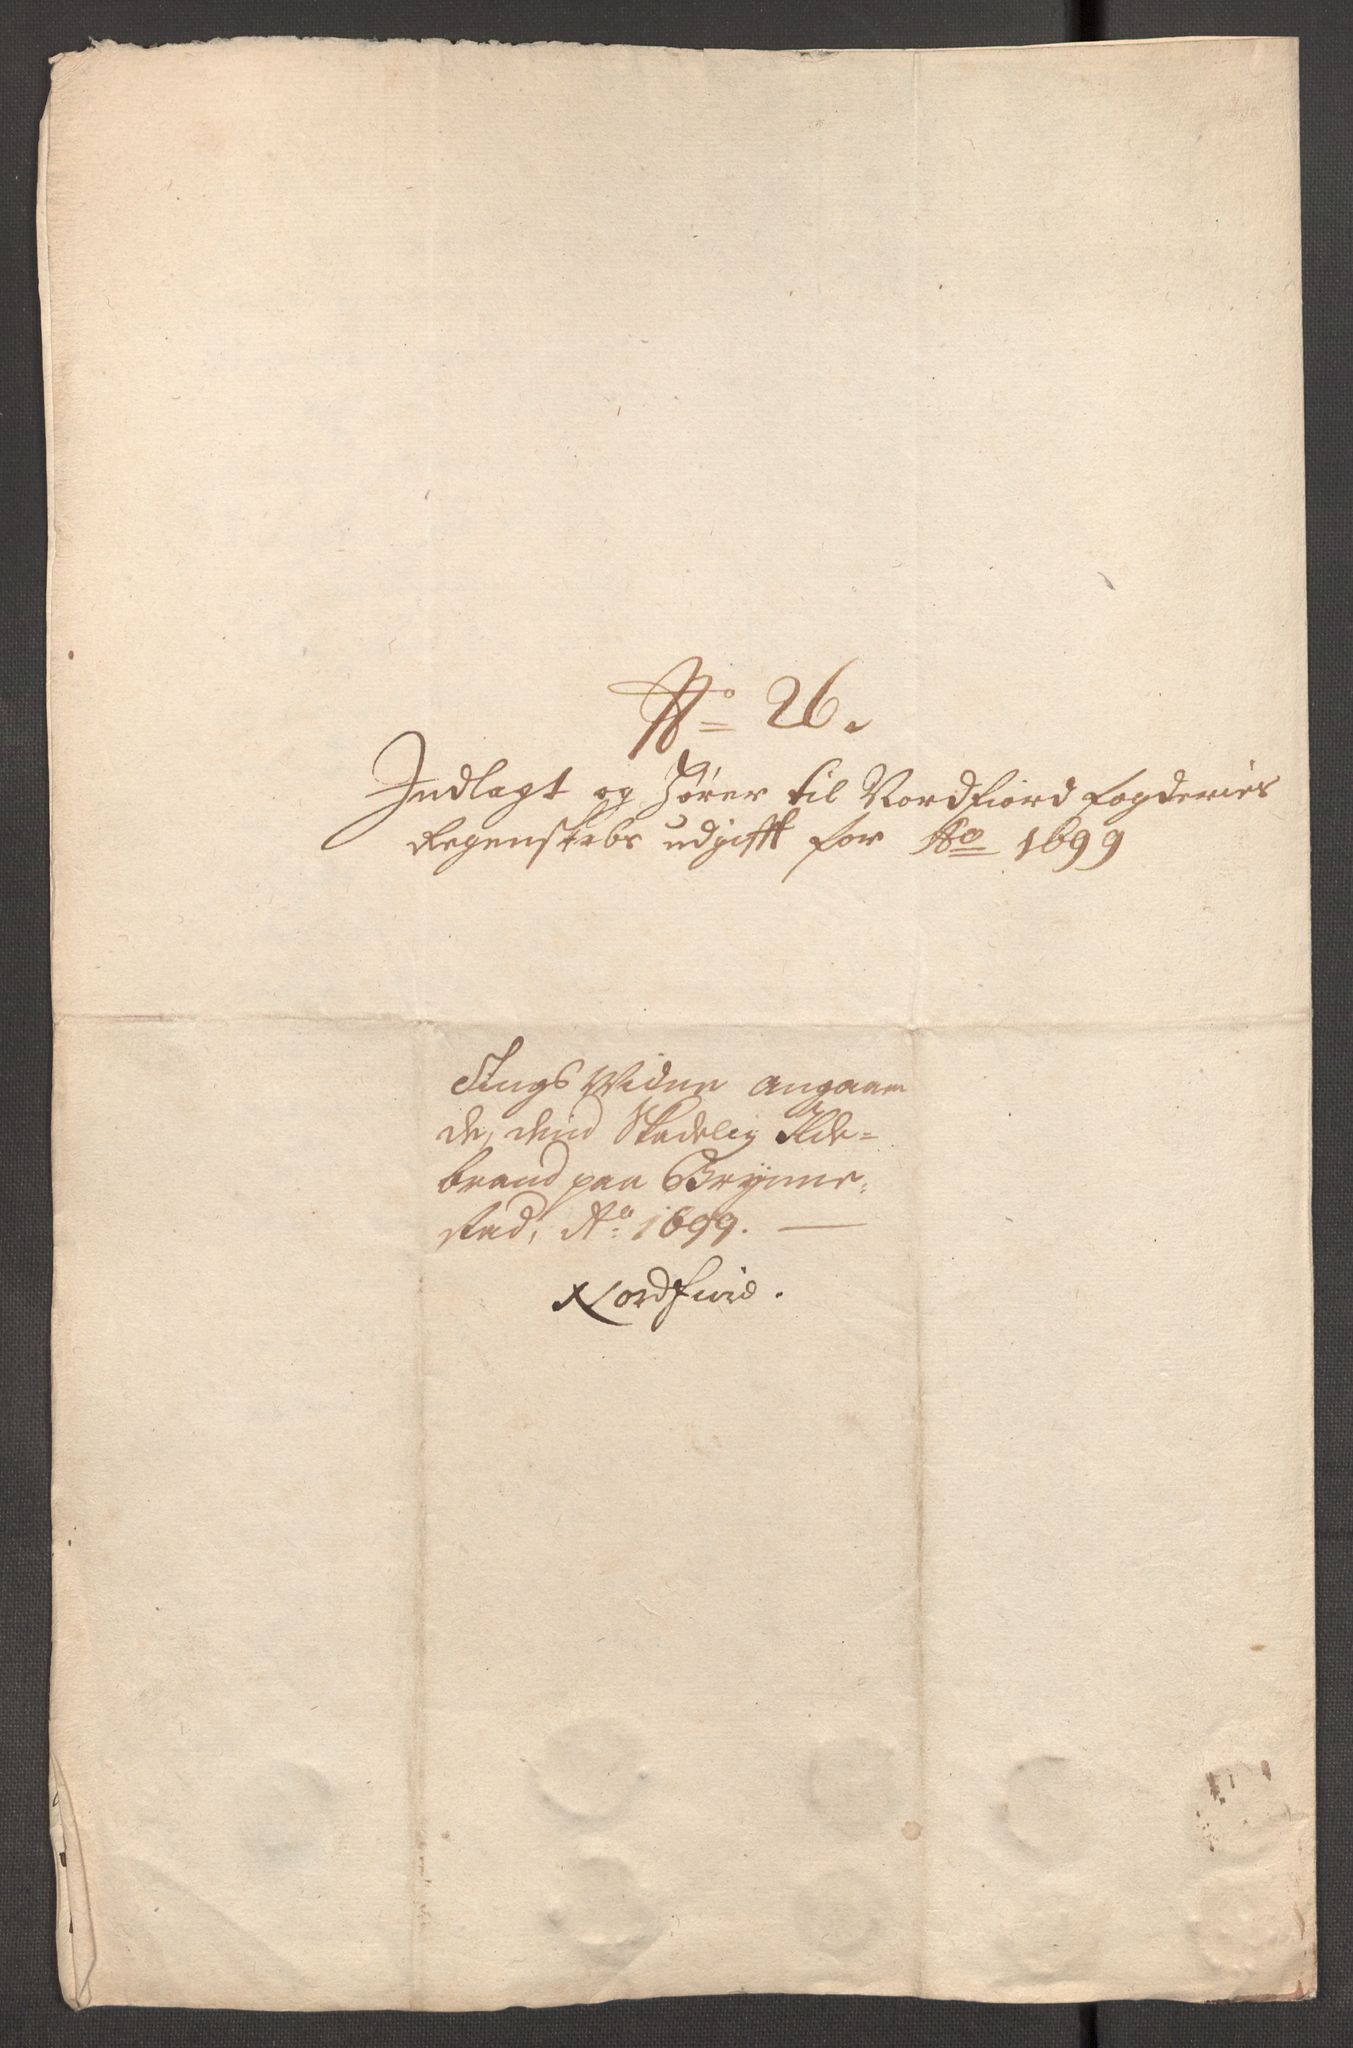 No 26.
Indlagt og hører til Nordfiord fogderies
Regenskabs udgifft for Ao 1699
Tings Widne angaaen
de, dend Skadelig Ilde=
brand paa Brynne=
stad, Ao 1699.
Nordfiord.